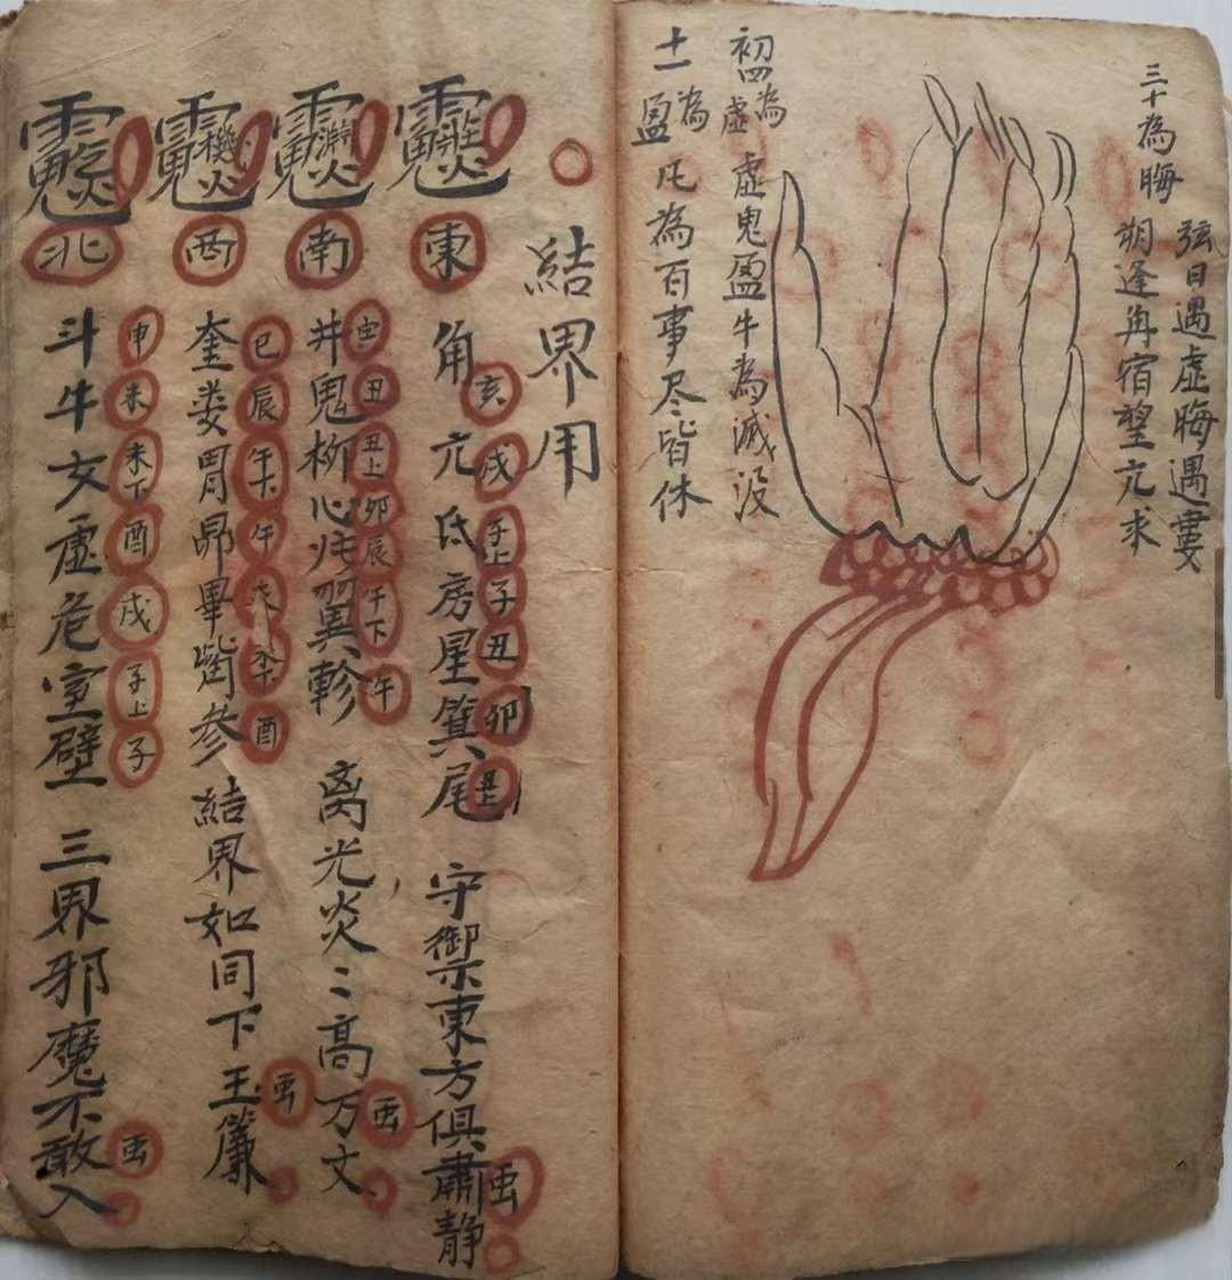 三十為晦
弦日遇虛晦遇婁
朔逢角宿望亢求
初四為虛
虛鬼盈牛為滅没
十一為盈
凡為百事尽皆休
結界用
東
角亢氐房星箕尾
亥
戌
子上
子
丑
卯
丑上
守禦東方俱肅静
南
井鬼柳心
翼軫
寅
丑
丑上
卯
辰
午下
午
离光炎〻高万文
西
奎婁胃昴畢觜参
巳
辰
午
酉
結界如同下玉簾
北
斗牛女虛危室壁
申
未
未下
酉
戌
子上
子
三界邪魔不敢入